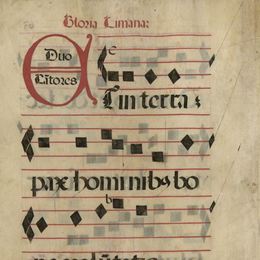 Gloria Limana:
Duo
Cãtores
Et in terra
pax hominibꝰ bo